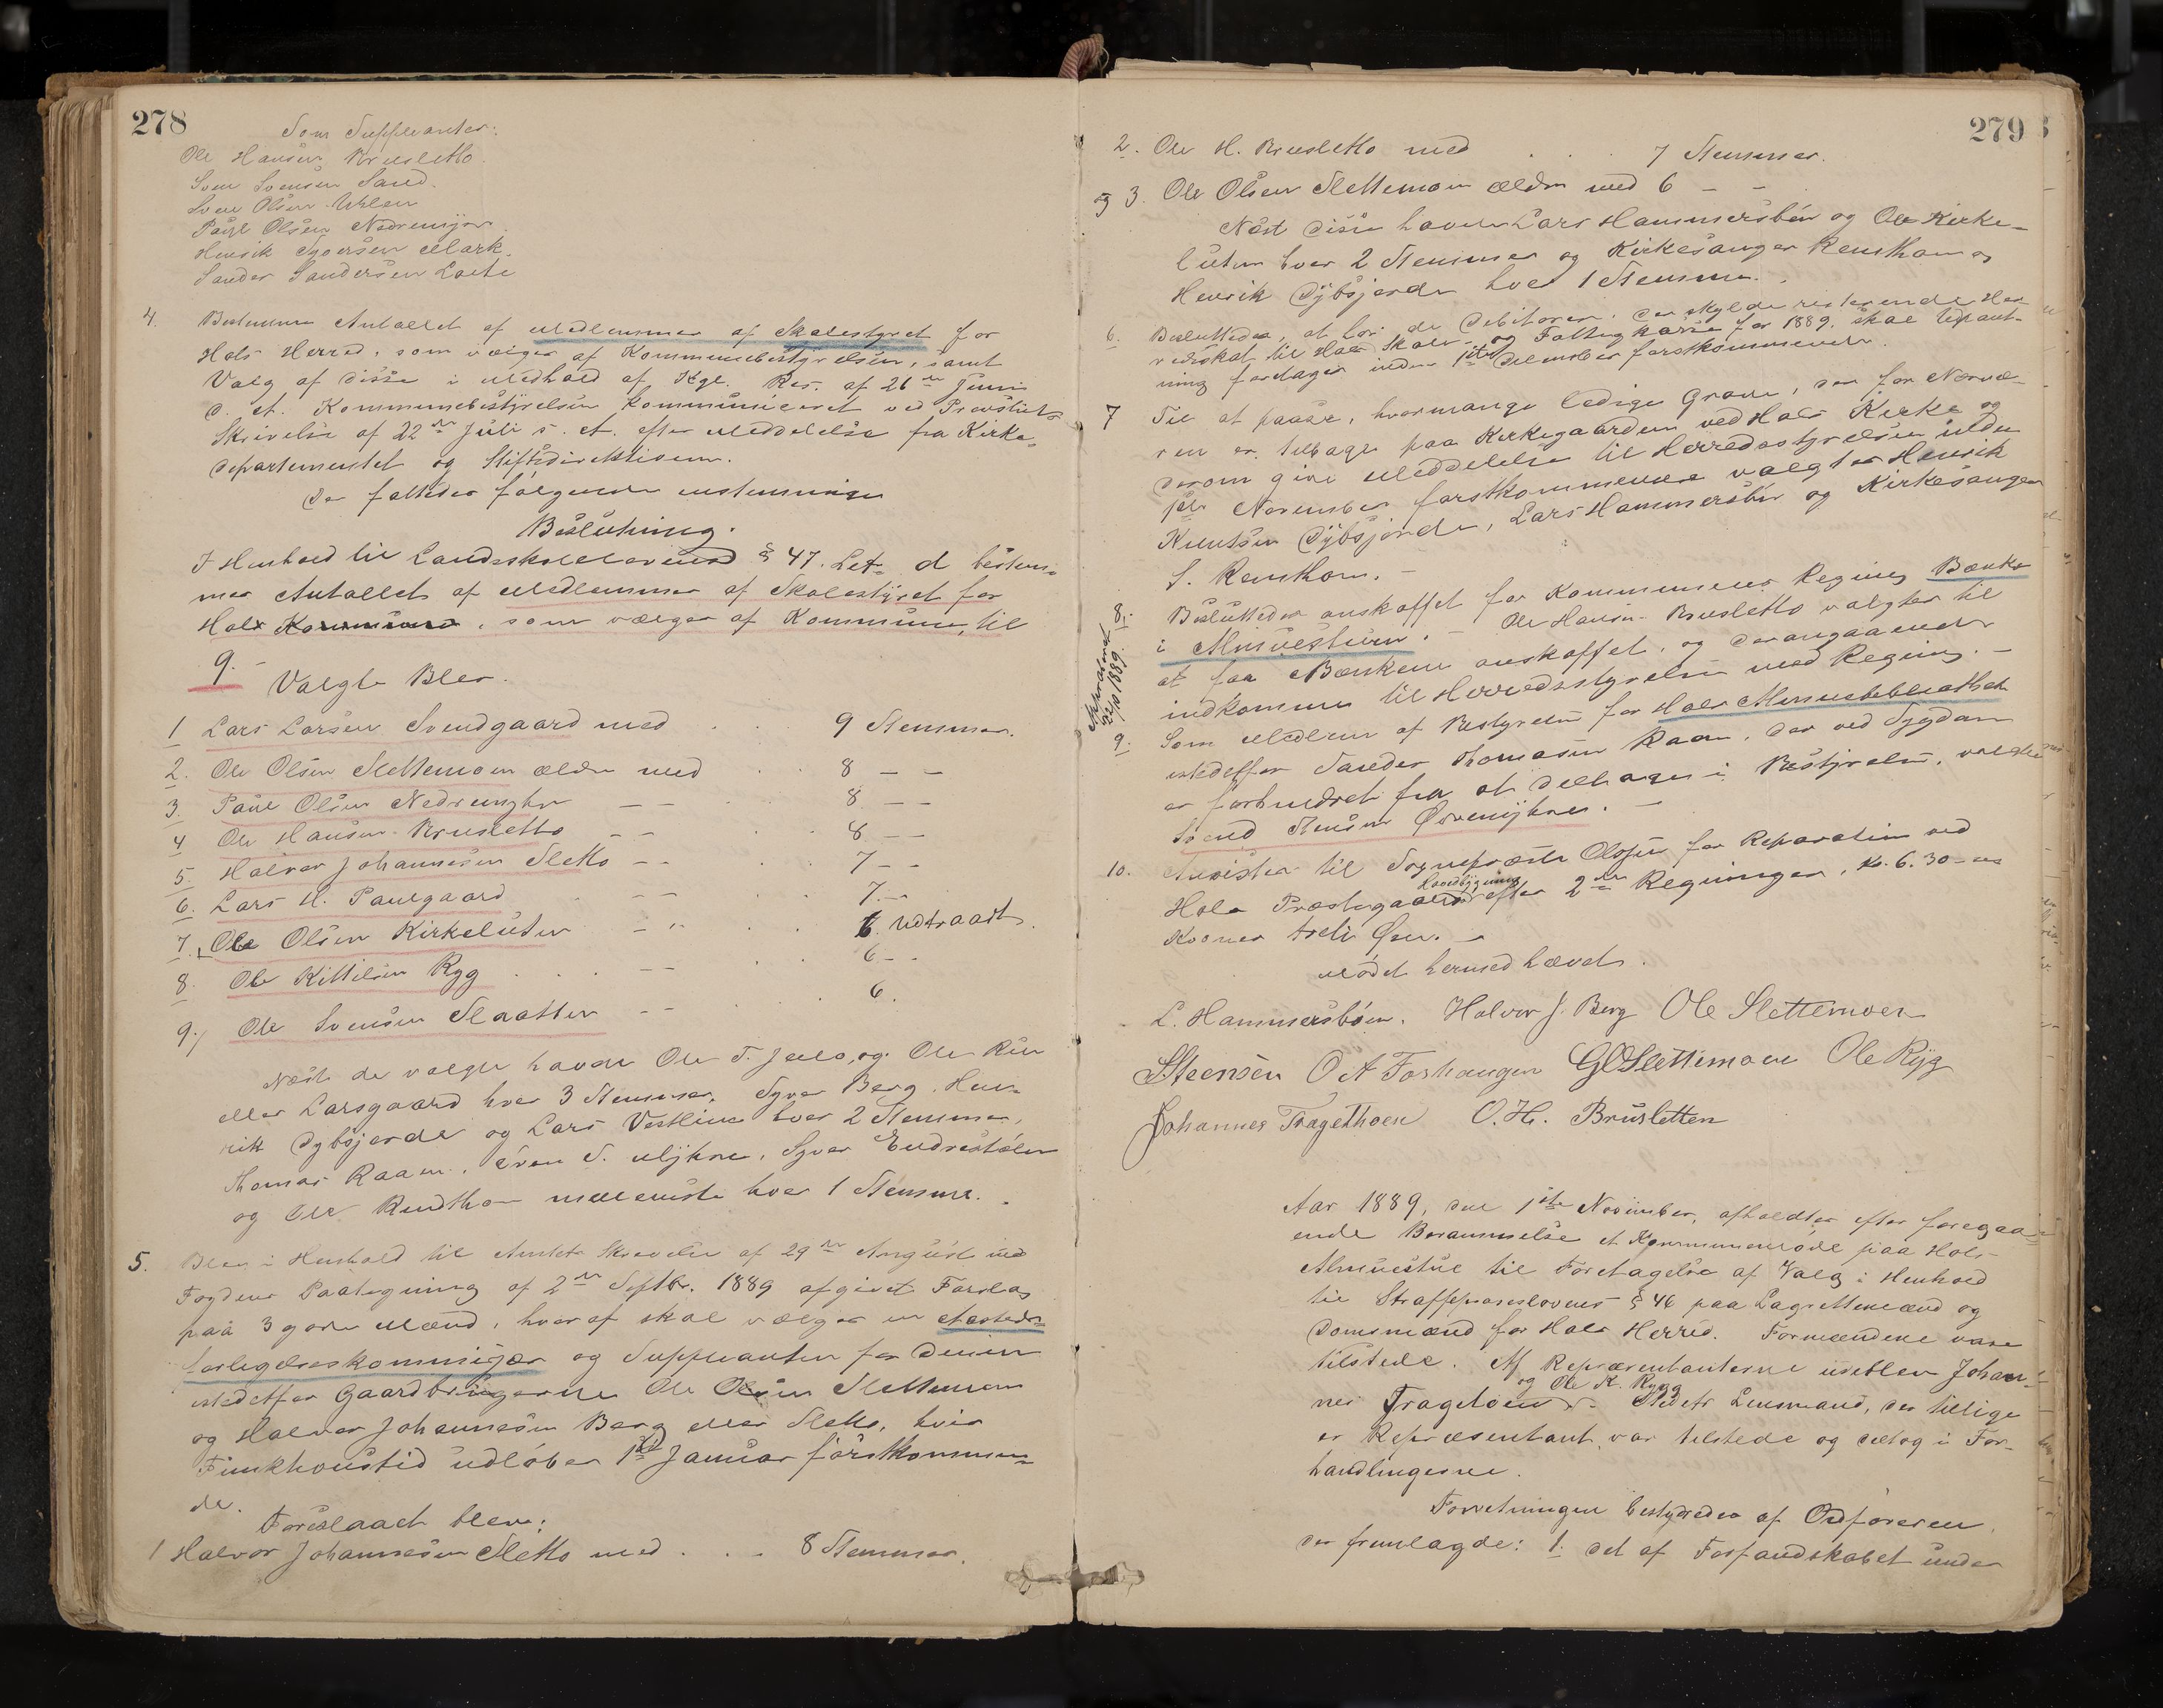 278
Som Suppleanter:
Ole Hansen Brusletto.
Sven Svensen Sand.
Sven Olsen Uhlen
Paul Olsen Nedremyr
Henrik Syversen Mark.
Sander Sandersen Loete
4. Bestemme Antallet af Medlemmer af Skolestyret for
Hols Herred, som vælges af Kommunebestyrelsen, samt
Valg af disse i Medhold af Kgl. Res. af 26de Juni
d. A. Kommunebestyrelsen kommuniceret ved Provstiets
Skrivelse af 22de Juli s. A. efter Meddelelse fra Kirke-
departementet og Stiftsdirektionen.
Der fattedes følgende enstemmige
Beslutning.
I Henhold til Landsskolelovens § 47. Let. d bestem-
mes Antallet af Medlemmer af Skolestyret for
Hols Kommune, som vælges af Kommunen, til
9. -
Valgte Blev.
1 Lars Larsen Svendgaard med . . 9 Stemmer.
2. Ole Olsen Slettemoen ældre med . . 8 - -
3. Paul Olsen Nedremyhr - - . 8 - -
4 Ole Hansen Brusletto - - . . 8 - -
5. Halvor Johannesen Sletto - - . . 7 - -
6. Lars H. Paulgaard . - - . . 7. -
7. Ole Olsen Kirkeluten - " . . 6. Udtraadt.
8. Ole Kittilsen Ryg . . . - - . . 6 - -
9. Ole Svensen Slaatten - - . . . 6.
Næst de valgte havde Ole T. Jello, og Ole Run
eller Larsgaard hver 3 Stemmer, Syver Berg, Hen-
rik Dybsjorde og Lars Vestlien hver 2 Stemmer,
Thomas Raaen, Sven S. Myhre, Syver Endrestølen
og Ole Rendthon nederste hver 1 Stemme.
5. Blev i Henhold til Amtets Skrivelse af 29de August med
Fogdens Paategning af 2den Septbr. 1889 afgivet Forslag
paa 3 gode Mænd, hvoraf skal vælges en Aasteds-
forligelseskommisær og Suppleanten for denne
istedetfor Gaardbrugerne Ole Olsen Slettemoen
og Halvor Johannesen Berg eller Sletto, hvis
Funktionstid udløber 1ste Januar førstkommen-
de.
Foreslaaet blev:
1 Halvor Johannesen Sletto med . . . 8 Stemmer.
279
2. Ole H. Brusletto med . . . 7 Stemmer.
3. Ole Olsen Slettemoen ældre med 6 - -
Næst disse havde Lars Hammersbøen og Ole Kirke-
luten hver 2 Stemmer og Kirkesanger Renthon og
Henrik Dybsjorde hver 1 Stemme.
6. Besluttedes, at hos de Debitorer, der skylde resterende Her-
redsskat til Hols Skole- og Fattigkasse for 1889, skal Udpant-
ning foretages inden 1ste December førstkommende.
7 Til at paase, hvormange ledige Grave, der for Nærvæ-
ren er tilbage paa Kirkegaarden ved Hols Kirke og
derom give Meddelelse til Herredsstyrelsen inden
1ste November førstkommende valgtes Henrik
Knutsen Dybsjorde, Lars Hammersbøn og Kirkesanger
S. Renthon. -
8. Besluttedes anskaffet for Kommunens Regning Bænke
i Almuestuen. - Ole Hansen Brusletto valgtes til
at faa Bænkene anskaffet, og derangaaende
indkomme til Herredsstyrelsen med Regning. -
22/10 1889.
9. Som Medlem af Bestyrelsen for Hols Almuebibliothek
istedetfor Sander Thomasen Raaen, der ved Sygdom
er forhindret fra at deltage i Bestyrelsen, valgtes
Svend Stensen Øvremyhren. -
10. Anvistes til Sognepræst Olssen for Reparation ved
Hovedbygning
Hols Præstegaard efter 2de Regninger, Kr. 6.30 - sex
Kroner treti Øre. -
Mødet hermed hævet.
L. Hammersbøen. Halvor J. Berg Ole Slettemoen
S Steensen O A Forhaugen G O Slettemoen Ole Ryg
Johannes Tragethoen O. H. Brusletten
Aar 1889, den 1ste November, afholdtes efter foregaa-
ende Berammelse et Kommunemøde paa Hols
Almuestue til Foretagelse af Valg i Henhold
til Straffeproceslovens § 46 paa Lagrettemænd og
Domsmænd for Hols Herred. Formændene vare
tilstede. Af Repræsentanterne udeblev Johan-
og Ole K. Rygg
nes Tragetoen. - Stedets Lensmand, der tillige
er Repræsentant, var tilstede og deltog i For-
handlingerne.
Forretningen bestyredes af Ordføreren,
der fremlagde: 1. det af Forfandskabet under